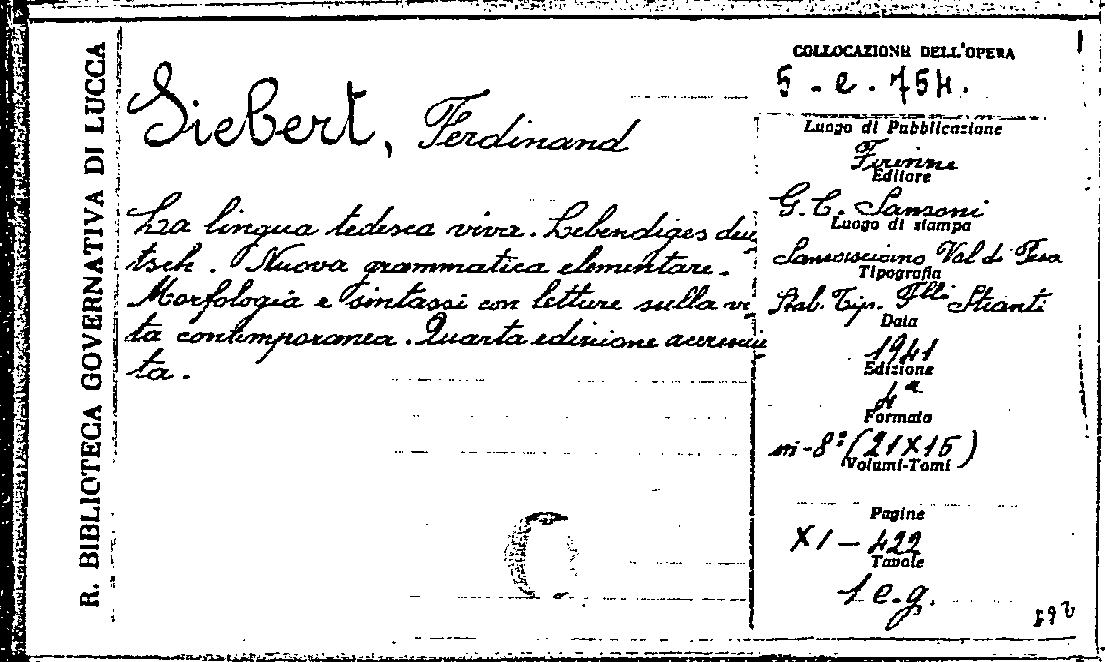 R. BIBLIOTECA GOVERNATIVA DI LUCCA
COLLOCAZIONE DELL'OPERA
5 - e . 754.
Siebert, Ferdinand
La lingua tedesca viva. Lebendiges deu
tsch. Nuova grammatica elementare.
Morfologia e sintassi con letture sulla vi
ta contemporanea. Quarta edizione accresciu
ta.
Luogo di Pubblicazione
Firenze
Editore
G. C. Sansoni
Luogo di stampa
Sancasciano Val di Pesa
Tipografia
Stab. Tip. F.lli Stianti
Data
1941
Edizione
4ª
Formato
in-8° (21X15)
Volumi-Tomi
Pagine
XI - 422
Tavole
1 c.g.